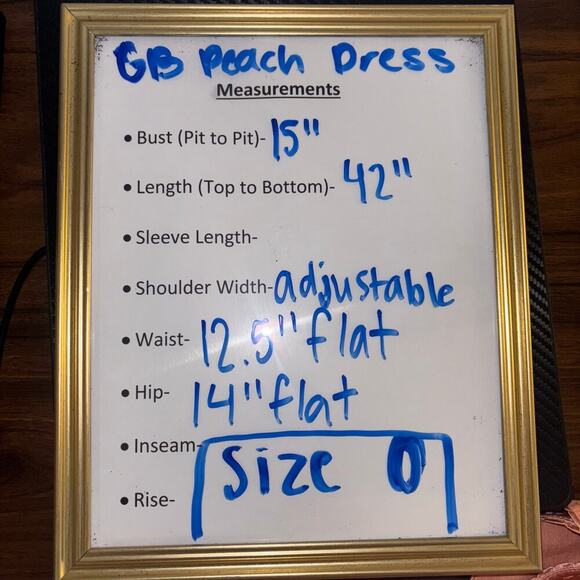 GB Peach Dress
Measurements
• Bust (Pit to Pit)- 15"
• Length (Top to Bottom)- 42"
• Sleeve Length-
• Shoulder Width- adjustable
• Waist- 12.5" flat
• Hip- 14" flat
• Inseam-
Size 0
• Rise-